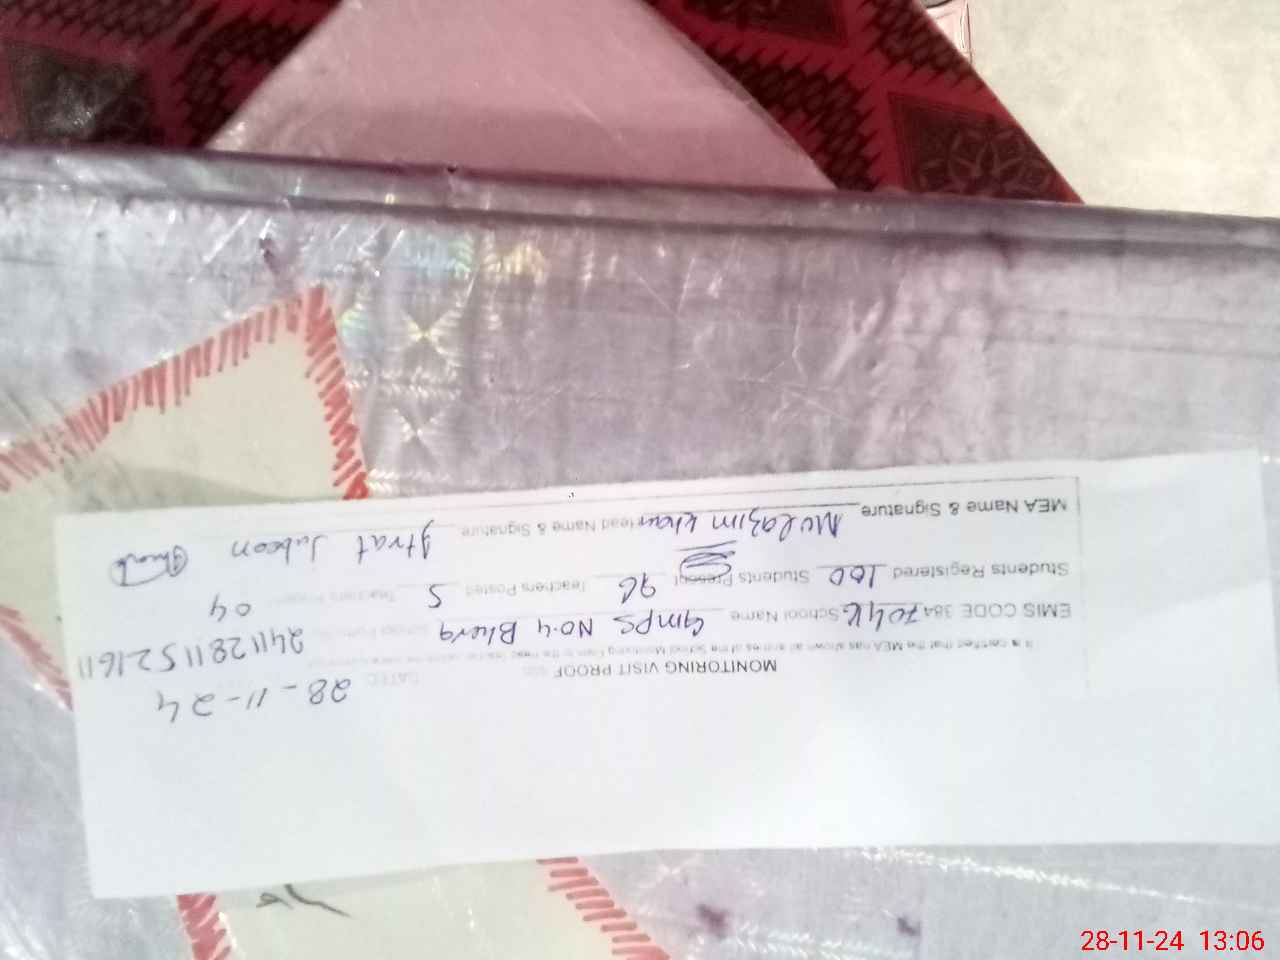 MONITORING VISIT PROOF DATED 28-11-24
It is certified that the MEA has shown all entries of the School Monitoring Form to the Head Teacher
EMIS CODE 384 School Name GMPS No.4 Bhera 24112811521611
Students Registered 100 Students Present 96 Teachers Posted 5 Teachers Present 04
MEA Name & Signature Mulazim Khan Head Name & Signature
28-11-24 13:06